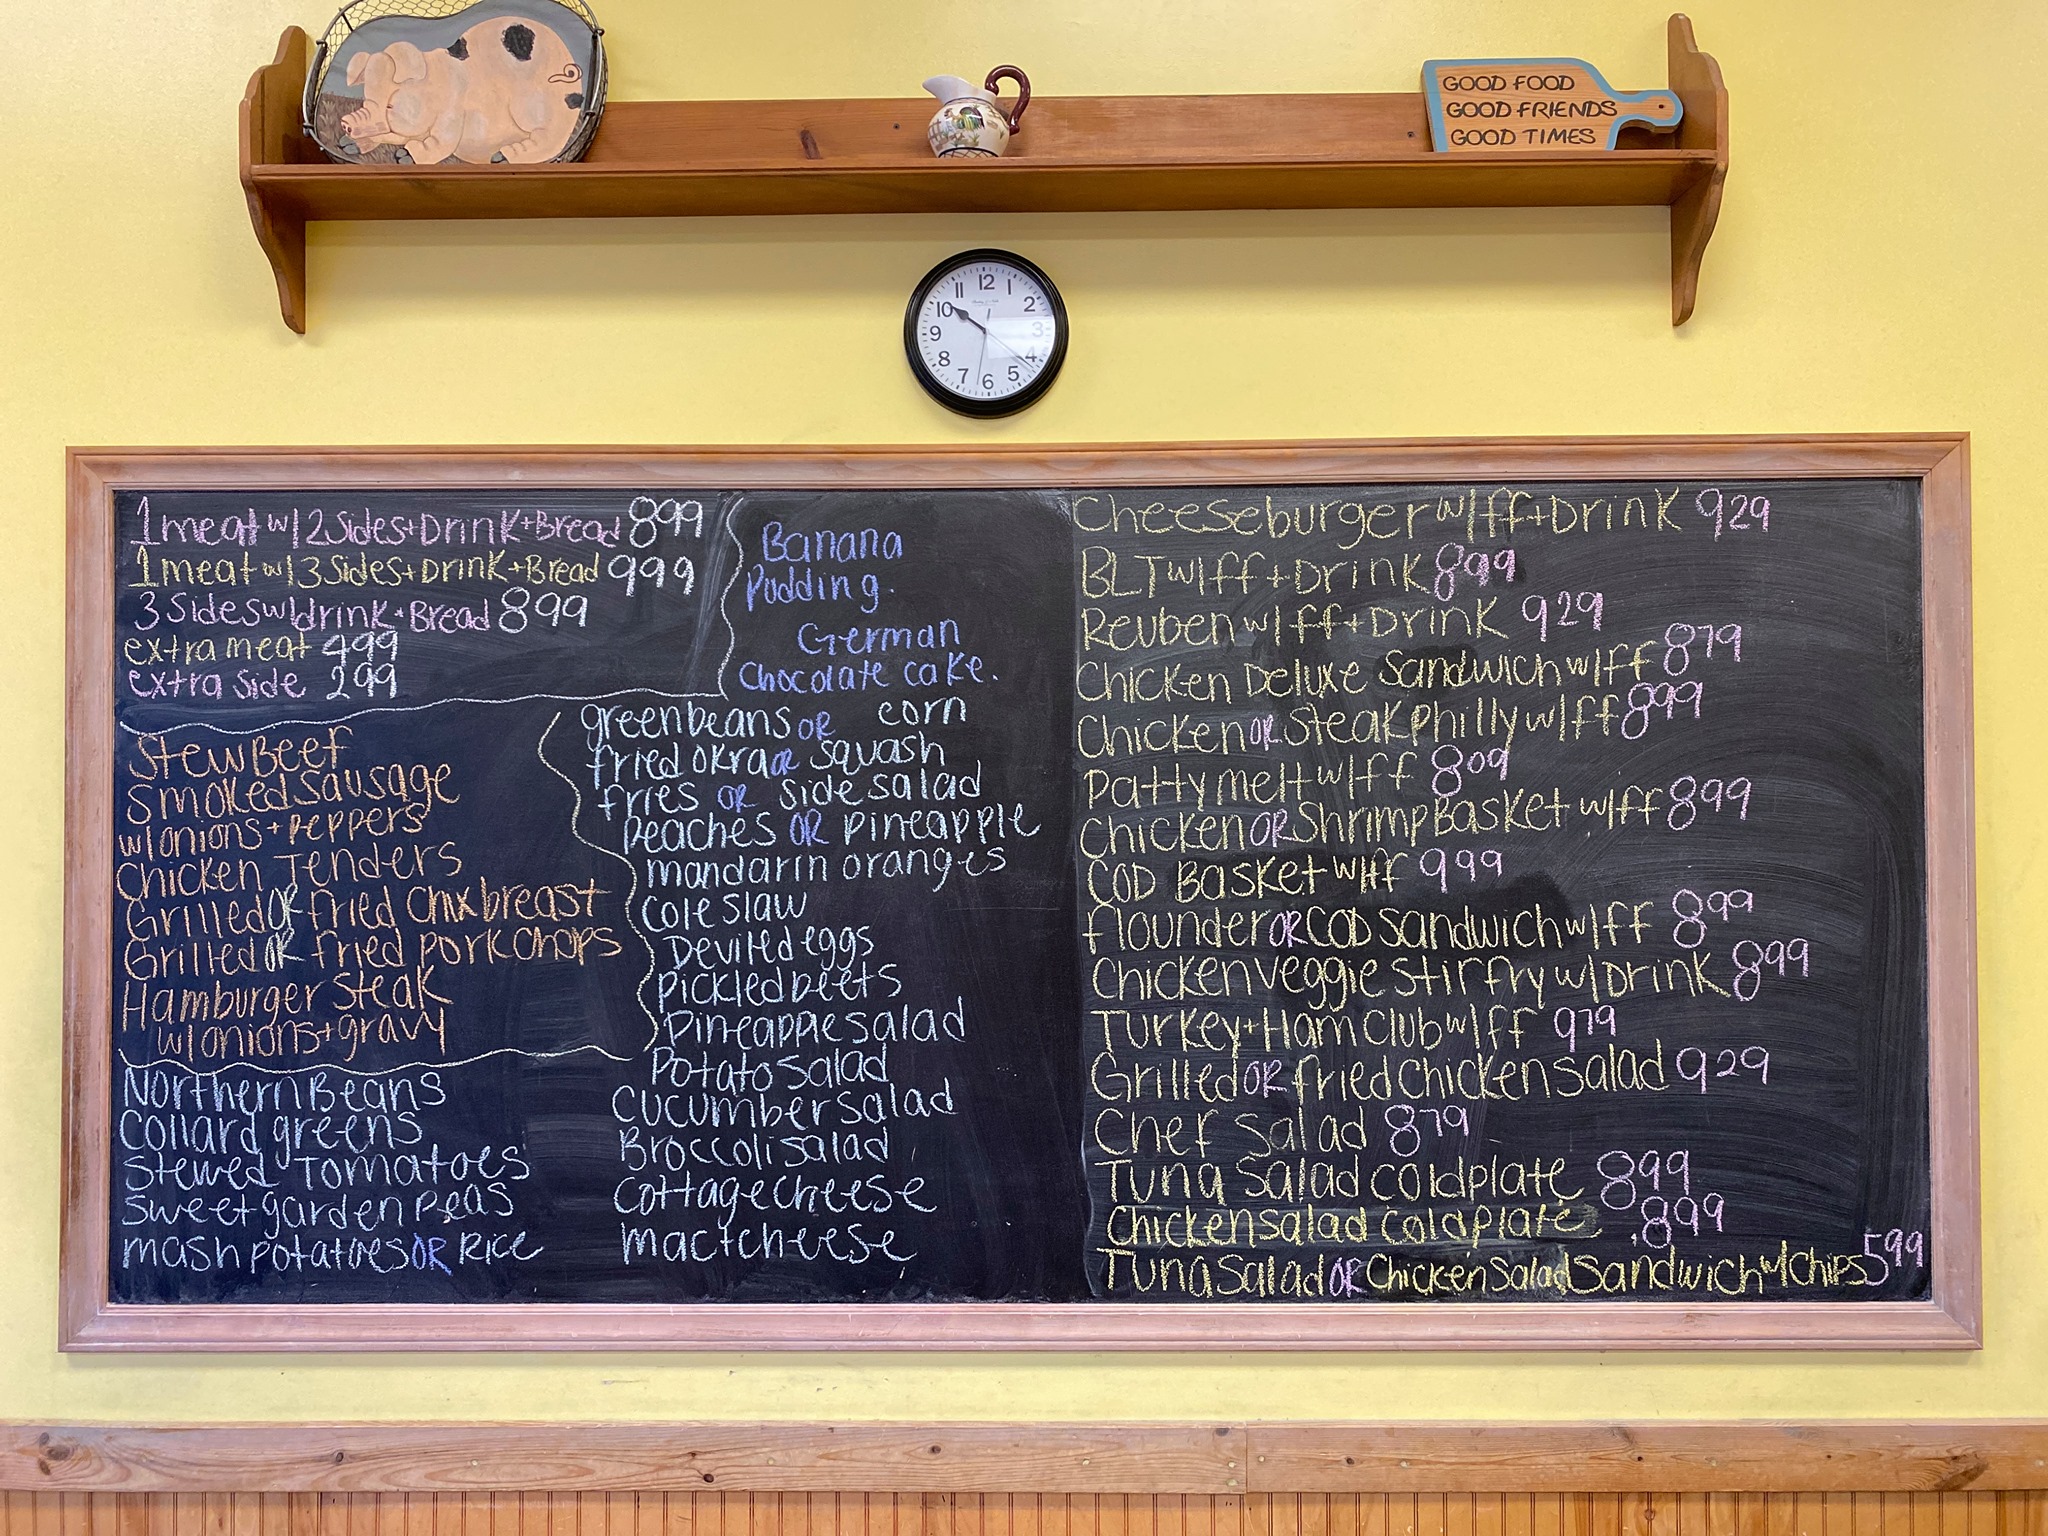 GOOD FOOD
GOOD FRIENDS
GOOD TIMES
11 12 1
10 2
9 3
8 4
7 6 5
1 meat w/ 2 Sides + Drink + Bread 899
1 meat w/ 3 Sides + Drink + Bread 999
3 Sides w/ drink + Bread 899
extra meat 499
extra Side 299
Banana
Pudding.
German
Chocolate cake.
Stew Beef
Smoked Sausage
w/ onions + Peppers
Chicken Tenders
Grilled OR fried Chix breast
Grilled OR fried Pork Chops
Hamburger Steak
w/ onions + gravy
Northern Beans
Collard greens
Stewed Tomatoes
Sweet garden Peas
mash potatoes OR Rice
green beans OR corn
fried okra OR squash
fries OR side salad
peaches OR pineapple
mandarin oranges
Cole slaw
Deviled eggs
Pickled beets
Pineapple salad
Potato Salad
Cucumber salad
Broccoli salad
Cottage cheese
mac + cheese
Cheeseburger w/ ff + Drink 929
BLT w/ ff + Drink 899
Reuben w/ ff + Drink 929
Chicken Deluxe Sandwich w/ ff 879
Chicken OR Steak Philly w/ ff 899
Patty melt w/ ff 809
Chicken OR Shrimp Basket w/ ff 899
COD Basket w/ ff 999
flounder OR COD Sandwich w/ ff 899
Chicken Veggie Stir fry w/ Drink 899
Turkey + Ham Club w/ ff 979
Grilled OR fried Chicken Salad 929
Chef Salad 879
Tuna Salad Coldplate 899
Chicken Salad Coldplate .899
Tuna Salad OR Chicken Salad Sandwich w/ Chips 599